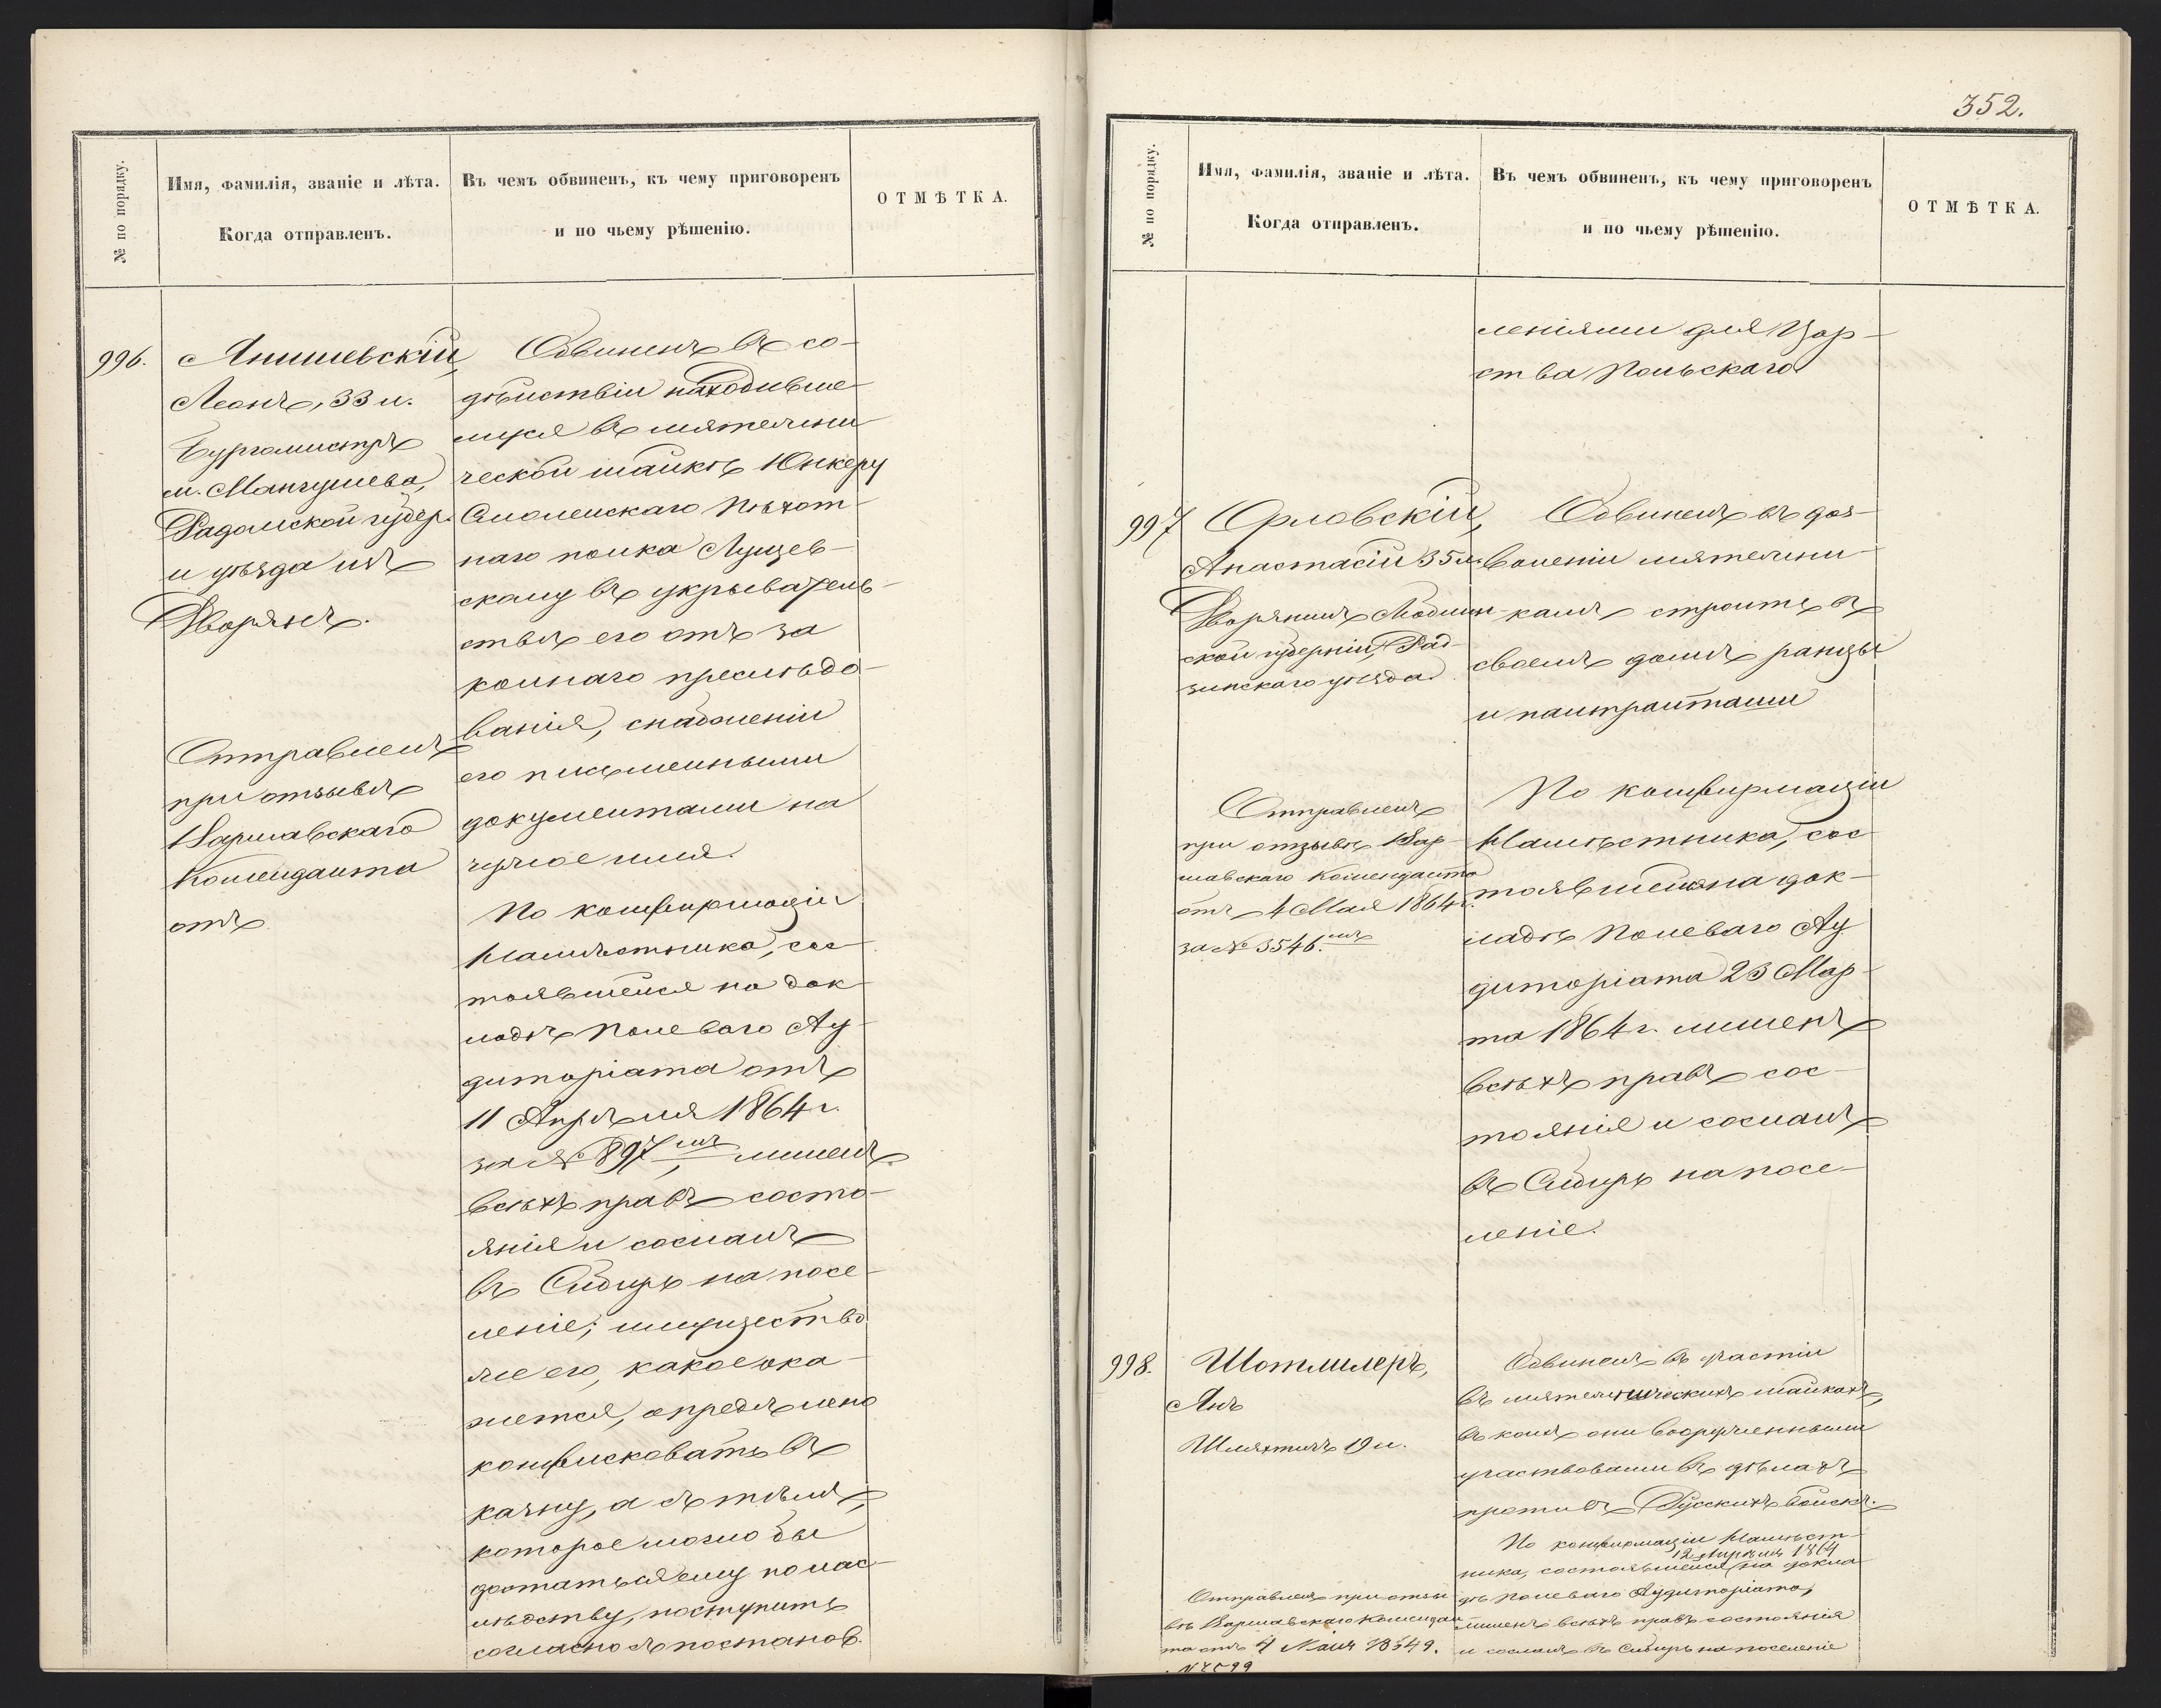 № по порядку.
Имя, фамилія, званіе и лѣта.
Когда отправленъ.
Въ чемъ обвиненъ, къ чему приговоренъ
и по чьему рѣшенію.
ОТМѢТКА.
996.
Янишевскій,
Леонъ, 33 л.
Бургомистръ
м. Мангушева,
Радомской губер.
и уѣзда изъ
Дворянъ.
Отправленъ
при отзывѣ
Варшавскаго
Коменданта
отъ
Обвиненъ въ со-
дѣйствіи находивше-
муся въ мятежни
ческой шайкѣ Юнкеру
Смоленскаго пѣхот-
наго полка Лущев-
скому въ укрыватель-
ствѣ его отъ за
коннаго преслѣдо-
ванія, снабженіи
его письменными
документами на
чужое имя.
По конфирмаціи
Намѣстника, сос-
тоявшейся на док-
ладѣ Полеваго Ау-
диторіата отъ
11 Апрѣля 1864 г.
за № 897мъ, лишенъ
всѣхъ правъ состо-
янія и сосланъ
въ Сибирь на посе-
леніе; имущество
же его, какое ока-
жется, опредѣлено
конфисковать въ
казну, а съ тѣмъ
которое могло бы
достаться ему по нас-
лѣдству, поступить
согласно съ постанов.
352.
№ по порядку.
Имя, фамилія, званіе и лѣта.
Когда отправленъ.
Въ чемъ обвиненъ, къ чему приговоренъ
и по чьему рѣшенію.
ОТМѢТКА.
леніями для Цар-
ства Польскаго
997
Орловскій,
Анастасій 35 л.
Дворянинъ Люблин-
ской губерніи, Рад-
зинскаго уѣзда.
Отправленъ
при отзывѣ Вар-
шавскаго Коменданта
отъ 4 Мая 1864 г.
за № 3546.мъ
Обвиненъ въ доз-
воленіи мятежни-
камъ строить въ
своемъ домѣ ранцы
и патронташи
По конфирмаціи
Намѣстника, сос
тоявшейся на док-
ладѣ Полеваго Ау
диторіата 23 Мар-
та 1864 г. лишенъ
всѣхъ правъ сос-
тоянія и сосланъ
въ Сибирь на посе-
леніе.
998.
Шотмилеръ,
Янъ
Шляхтичъ 19 л.
Отправленъ при отзы
вѣ Варшавскаго Комендан
та отъ 4 Мая
Обвиненъ въ участіи
въ мятежническихъ шайкахъ,
въ коихъ они вооруженными
участвовали въ дѣлахъ
противъ Русскихъ войскъ.
По конфирмаціи Намѣст-
12 Апрѣля 1864
ника, состоявшейся на докла-
дѣ Полеваго Аудиторіата,
лишенъ всѣхъ правъ состоянія
и сосланъ въ Сибирь на поселеніе